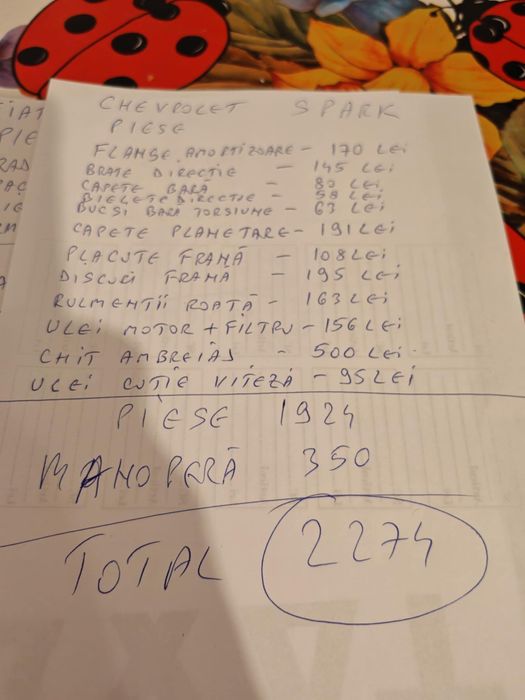 CHEVROLET SPARK
PIESE
FLANSE AMORTIZOARE - 170 LEI
BRATE DIRECTIE - 145 LEI
CAPETE BARA - 80 LEI
BIELETE DIRECTIE - 58 LEI
BUCSI BARA TORSIUNE - 63 LEI
CAPETE PLANETARE - 191 LEI
PLACUTE FRANĂ - 108 LEI
DISCURI FRANĂ - 195 LEI
RULMENTII ROATĂ - 163 LEI
ULEI MOTOR + FILTRU - 156 LEI
CHIT AMBREIAJ - 500 LEI
ULEI CUTIE VITEZĂ - 95 LEI
PIESE 1924
MANOPERĂ 350
TOTAL 2274